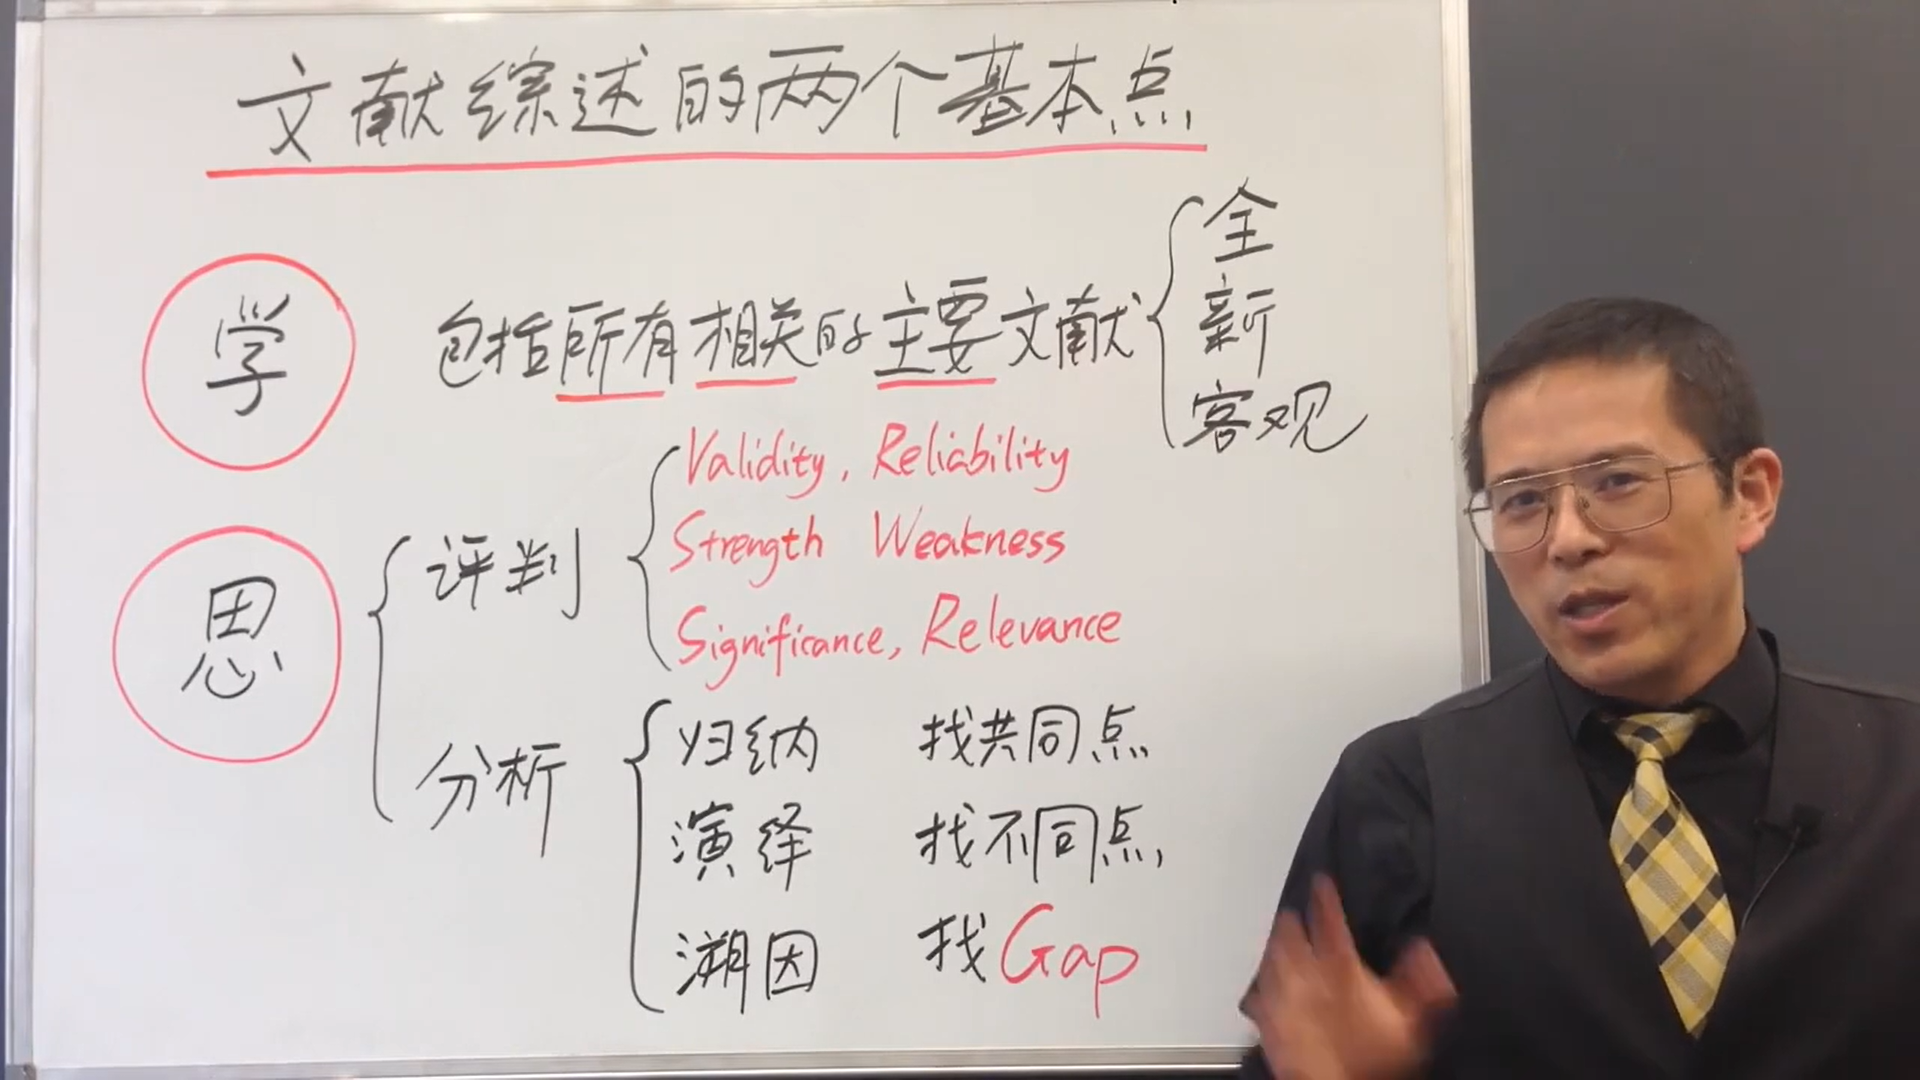 文献综述的两个基本点
学
包括所有相关的主要文献
全
新
客观
思
评判
Validity, Reliability
Strength Weakness
Significance, Relevance
分析
归纳 找共同点
演绎 找不同点
溯因 找Gap